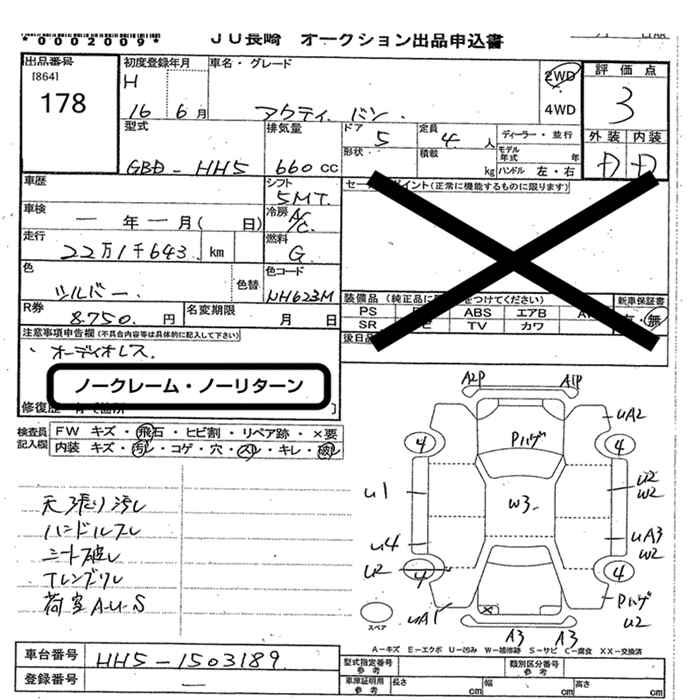 *0002009*
JU長崎 オークション出品申込書
出品番号 [864] 178
初度登録年月 H 16 6月
車名・グレード アクティ バン
2WD
4WD
評価点 3
外装 内装
D D
型式 GBD-HH5
排気量 660cc
ドア 5
定員 4人
ディーラー・並行
形状
積載 kg
モデル年式 年
ハンドル 左・右
車歴
シフト 5MT
車検 ー年ー月( 日)
冷房 A/C
走行 22万1千643 km
燃料 G
色 シルバー
色替
色コード NH623M
R券 8,750.円
名変期限 月 日
セー ポイント(正常に機能するものに限ります)
装備品(純正品に をつけてください)
新車保証書
PS ABS エアB
SR TV カワ
有・無
後日品
注意事項申告欄(不具合内容等は具体的に記入して下さい)
・オーディオレス
ノークレーム・ノーリターン
修復歴
検査員記入欄
FW キズ・飛石・ヒビ割・リペア跡・×要
内装 キズ・汚れ・コゲ・穴・スレ・キレ・破れ
天張り汚レ
ハンドルスレ
シート破レ
荷室A-U-S
A2P A1P
UA2
4 Pハゲ 4
U1 W3 U2 W2
U4 UA3 W2
U2 4 4
UA1 Pハゲ U2
スペア
A3 A3
A-キズ E-エクボ U-凹み W-補修跡 S-サビ C-腐食 XX-交換済
車台番号 HH5-1503189
登録番号 ー
型式指定番号 参考
類別区分番号 参考
車庫証明用 参考 長さ cm 幅 cm 高さ cm